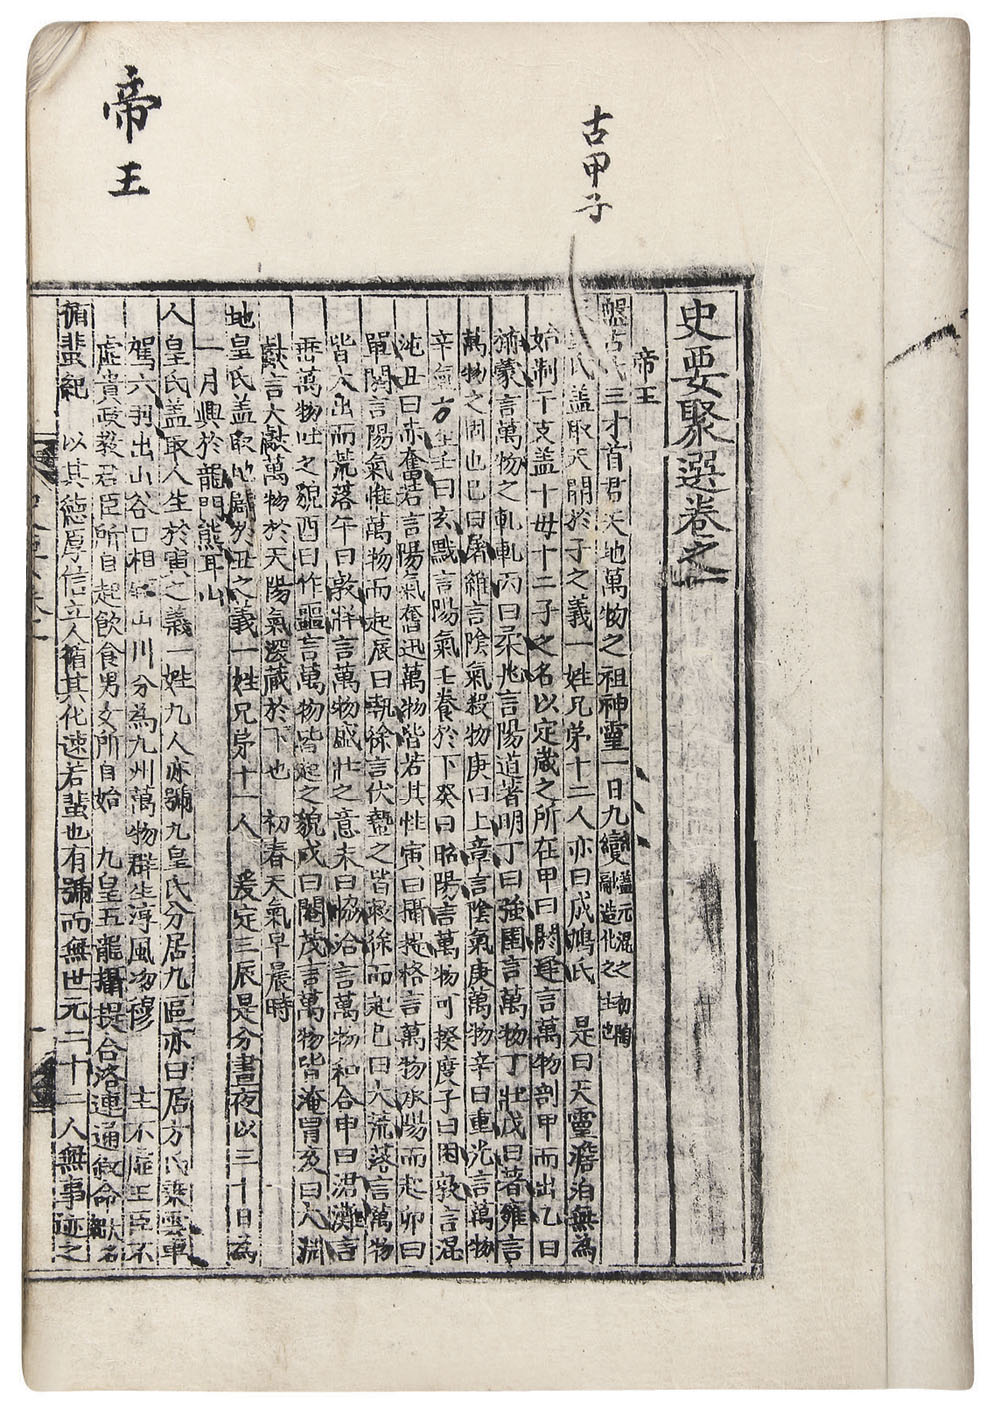 古甲子
帝王
史要聚選卷之一
帝王
盤古氏三才首君天地萬物之祖神靈一日九變蓋元混之初陶融造化之主也
皇氏盖取天開於子之義一姓兄弟十二人亦曰成鳩氏 是曰天靈澹泊無為
始制干支盖十母十二子之名以定歲之所在甲曰閼逢言萬物剖甲而出乙曰
旃蒙言萬物之軋軋丙曰柔兆言陽道著明丁曰強圉言萬物丁壯戊曰著雍言
萬物之固也己曰屠維言陰氣殺物庚曰上章言陰氣庚萬物辛曰重光言萬物
辛氣方生壬曰玄黓言陽氣壬養於下癸曰昭陽言萬物可揆度子曰困敦言混
沌丑曰赤奮若言陽氣奮迅萬物皆若其性寅曰攝提格言萬物承陽而起卯曰
單閼言陽氣惟萬物而起辰曰執徐言伏蟄之皆敦徐而起巳曰大荒落言萬物
皆大出而荒落午曰敦牂言萬物盛壯之意未曰協洽言萬物和合申曰涒灘言
萬物吐之貌酉曰作噩言萬物皆起之貌戌曰閹茂言萬物皆淹冒亥曰大淵
獻言大獻萬物於天陽氣深藏於下也 初春天氣早晨時
地皇氏盖取地闢於丑之義一姓兄弟十一人 爰定三辰是分晝夜以三十日為
一月興於龍門熊耳山
人皇氏盖取人生於寅之義一姓九人亦號九皇氏分居九區亦曰居方氏乘雲車
駕六羽出山谷口相山川分為九州萬物群生淳風沕穆 主不虛王臣不
虛貴政教君臣所自起飲食男女所自始 九皇五龍攝提合洛連通叙命
循蜚紀 以其德厚信立人循其化速若蜚也有號而無世元二十二人無事迹之